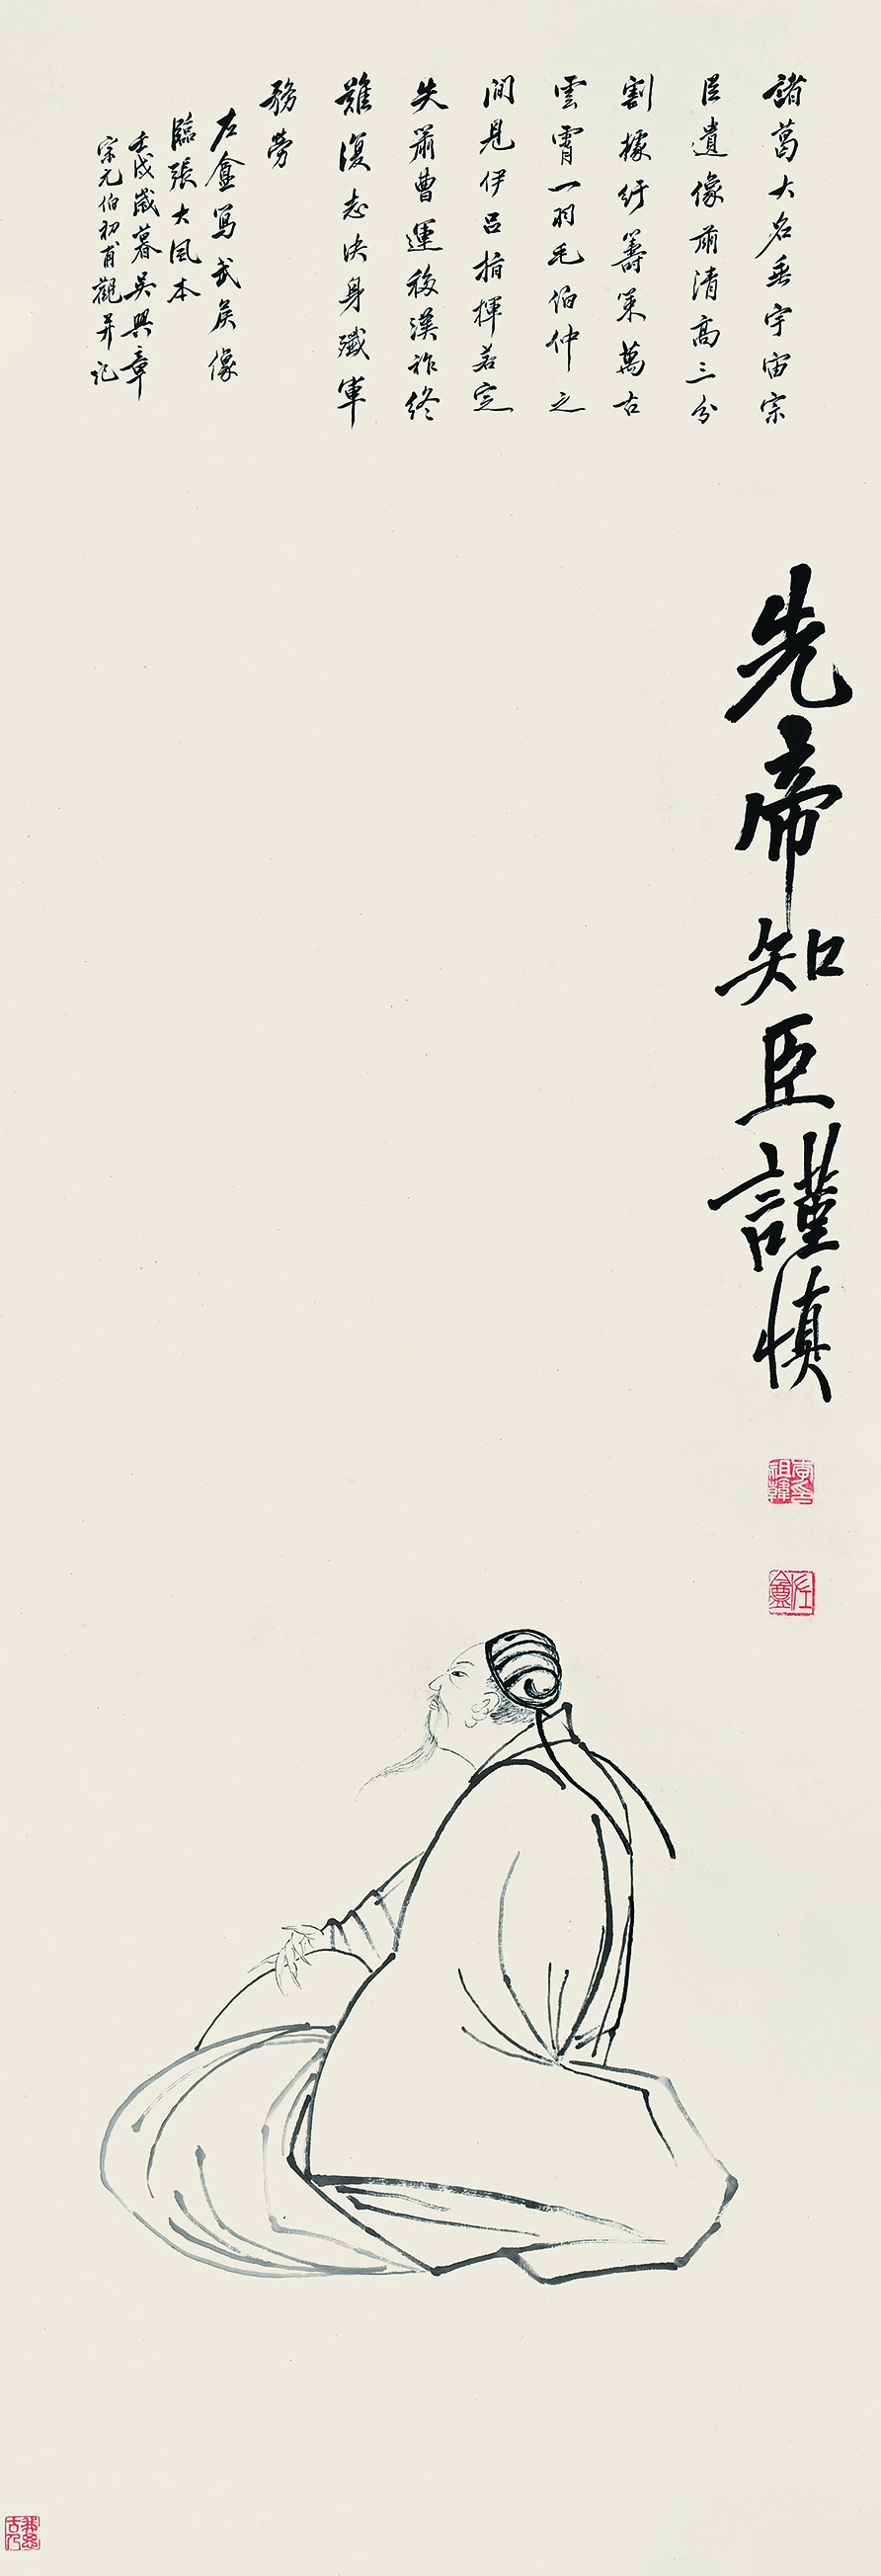 諸葛大名垂宇宙宗
臣遺像肅清高三分
割據紆籌策萬古
雲霄一羽毛伯仲之
間見伊呂指揮若定
失蕭曹運移漢祚終
難復志決身殲軍
務勞
左盦寫武矦像
臨張大風本
壬戌歲暮吳興章
宗元伯初甫觀并記
先帝知臣謹慎
李祖韓印
左盦
我思古人